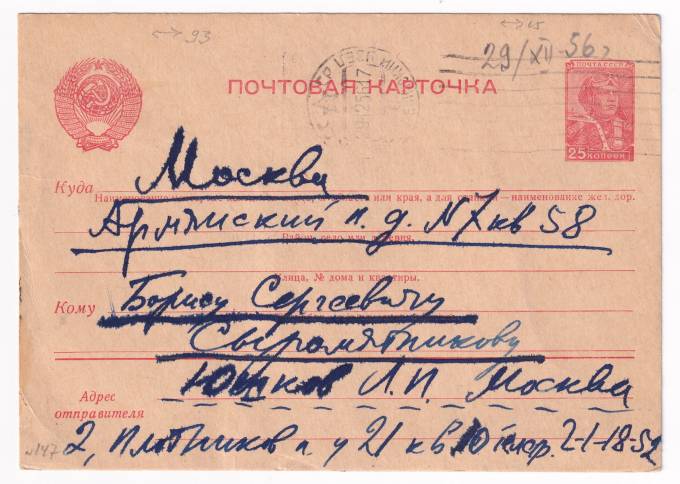 93
29/XII-56г
ПОЧТА СССР
ПОЧТОВАЯ КАРТОЧКА
25 КОПЕЕК
Куда Москва
или края, а для станции — наименование жел. дор.
Армянский п д. N 7 кв 58
село или деревня.
Улица, № дома и квартиры.
Кому Борису Сергеевичу
Сыромятникову
Юшков Л.П. Москва
Адрес
отправителя
№147 2, Плотников п 21 кв 10 2-1-18-52